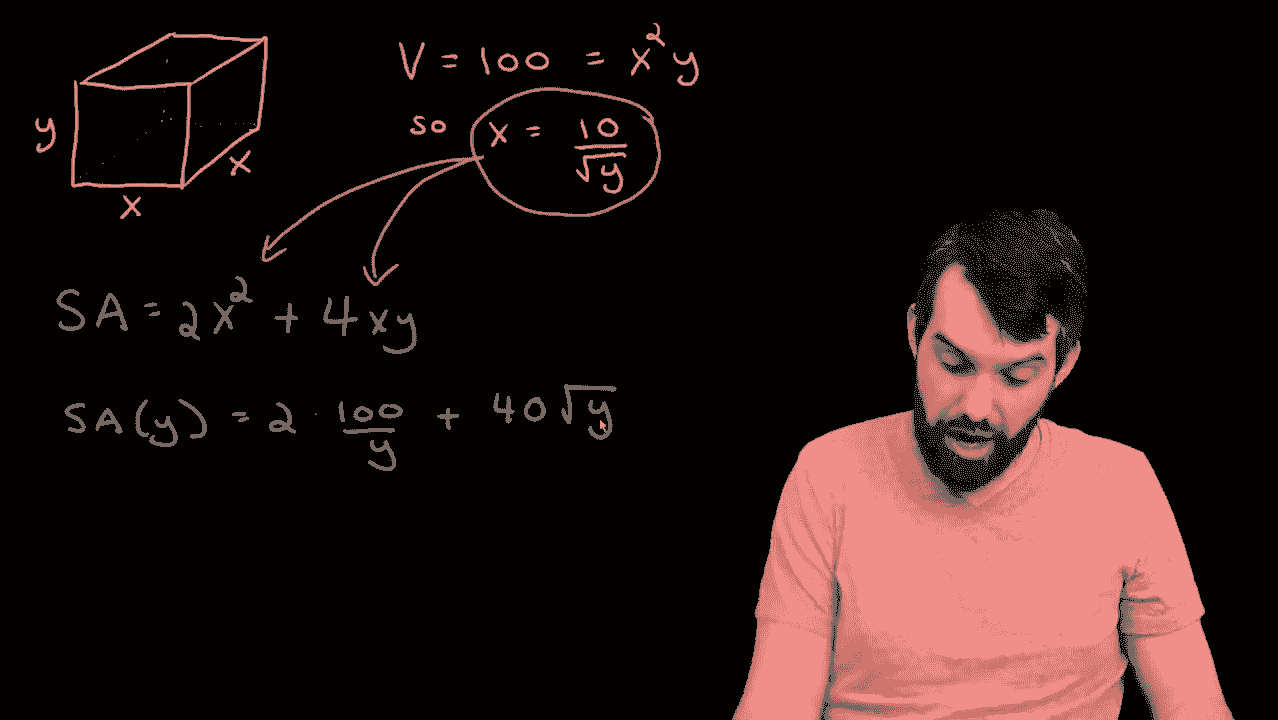 V = 100 = x²y
so x = 10/√y
y
x
x
SA = 2x² + 4xy
SA(y) = 2 · 100/y + 40√y